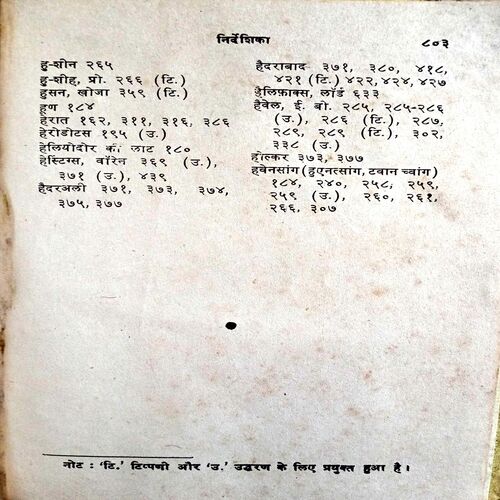 निर्देशिका ८०३
हु-शीन २६५
हु-शीह, प्रो. २६६ (टि.)
हुसन, खोजा ३५९ (टि.)
हूण १८४
हेरात १६२, ३११, ३१६, ३८६
हेरोडोटस १९५ (उ.)
हेलियोदोर की लाट १८०
हेस्टिंग्स, वॉरेन ३६९ (उ.),
३७१ (उ.), ४३९
हैदरअली ३७१, ३७३, ३७४,
३७५, ३७७
हैदराबाद ३७१, ३८०, ४१८,
४२१ (टि.) ४२२, ४२४, ४२७
हैलिफ़ाक्स, लॉर्ड ६३३
हैवेल, ई. बी. २८५, २८५-२८६
(उ.), २८६ (टि.), २८७,
२८९, २८९ (टि.), ३०२,
३३८ (उ.)
होल्कर ३७३, ३७७
ह्वेनसांग (हुएनत्सांग, टवान च्वांग)
१८४, २४०, २५८, २५९,
२५९ (उ.), २६०, २६१,
२६६, ३०७
नोट : 'टि.' टिप्पणी और 'उ.' उद्धरण के लिए प्रयुक्त हुआ है।